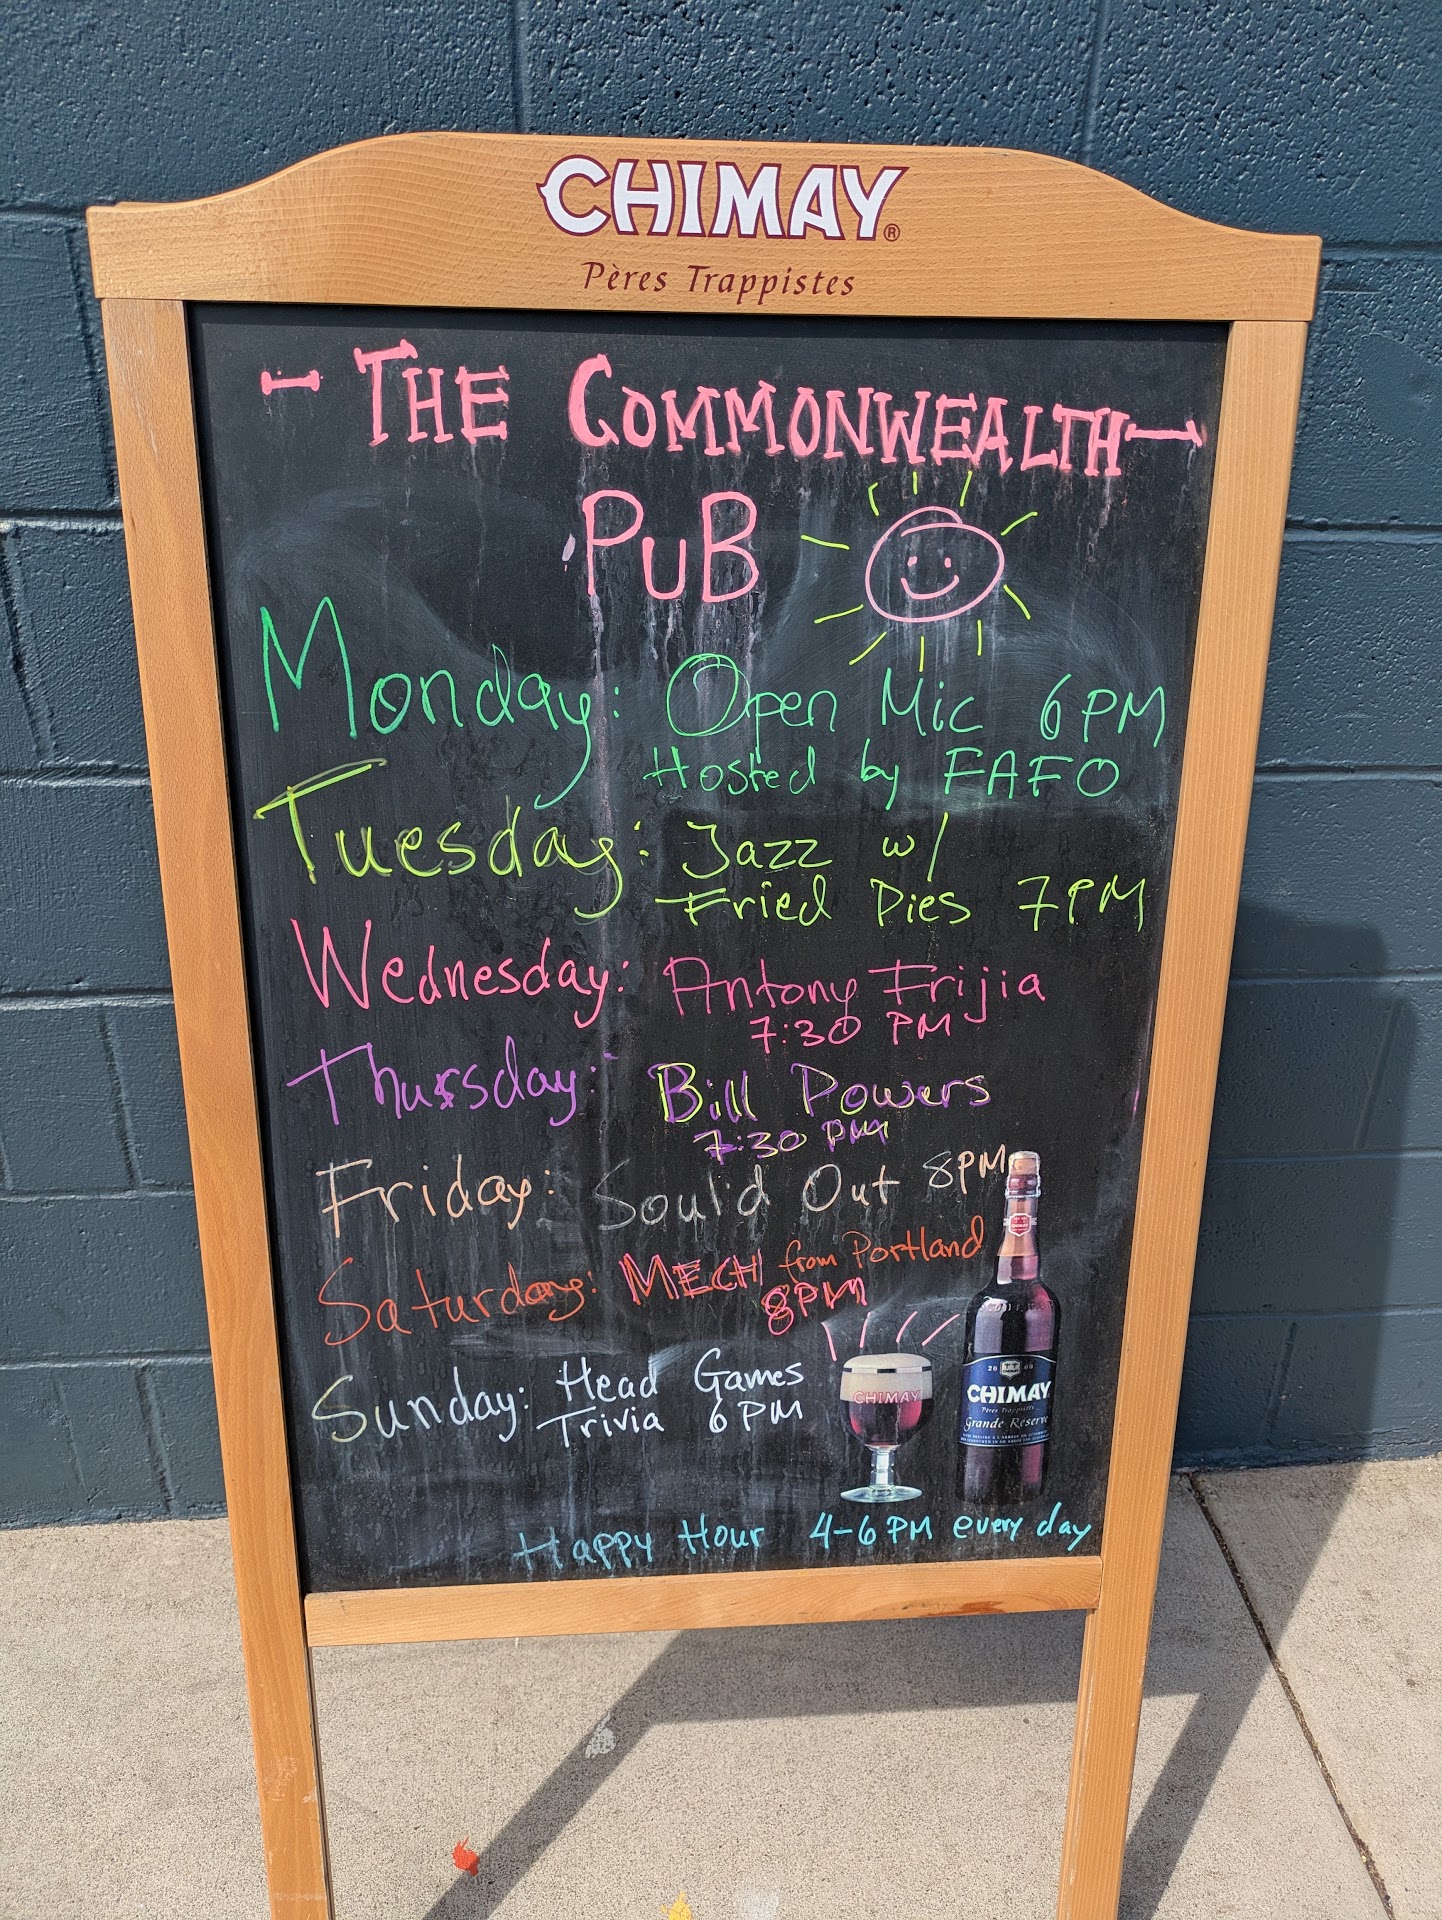 CHIMAY®
Pères Trappistes
- THE COMMONWEALTH -
PUB
Monday: Open Mic 6PM
Hosted by FAFO
Tuesday: Jazz w/
Fried Pies 7PM
Wednesday: Antony Frijia
7:30 PM
Thursday: Bill Powers
7:30 PM
Friday: Soul'd Out 8PM
Saturday: MECH from Portland
8PM
Sunday: Head Games
Trivia 6PM
CHIMAY
2009
CHIMAY
Pères Trappistes
Grande Réserve
Happy Hour 4-6PM every day